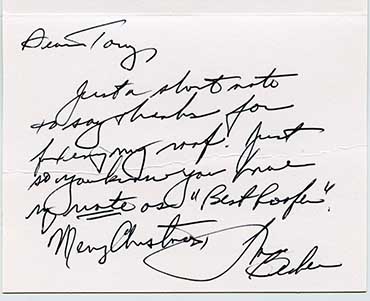 Dear Tony,
Just a short note
to say thanks for
fixing my roof. Just
so you know you have
my vote as "Best Roofer".
Merry Christmas,